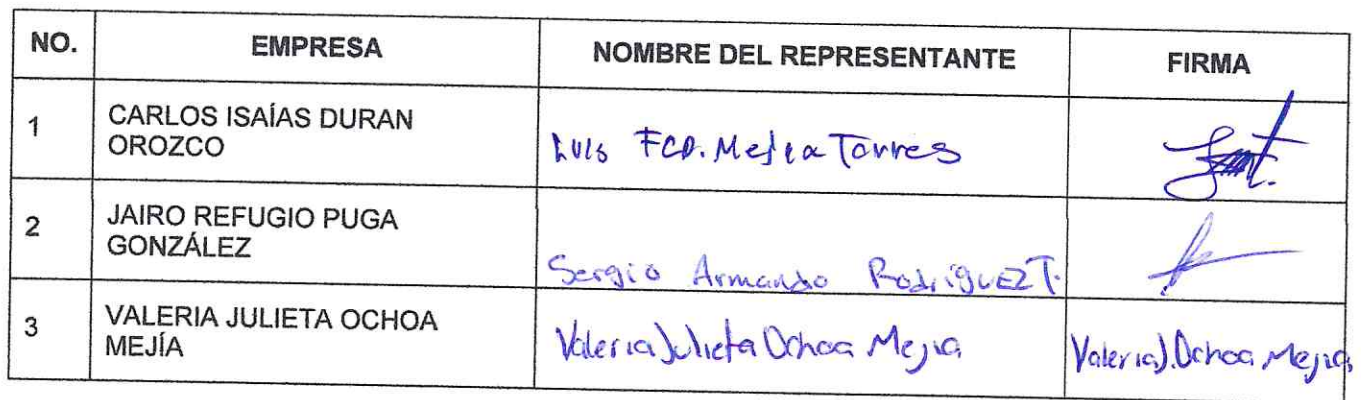 NO. EMPRESA NOMBRE DEL REPRESENTANTE FIRMA
1 CARLOS ISAÍAS DURAN
OROZCO
Luis Fco. Mejia Torres
2 JAIRO REFUGIO PUGA
GONZÁLEZ
Sergio Armando Rodriguez T.
3 VALERIA JULIETA OCHOA
MEJÍA
Valeria Julieta Ochoa Mejia
Valeria J. Ochoa Mejia